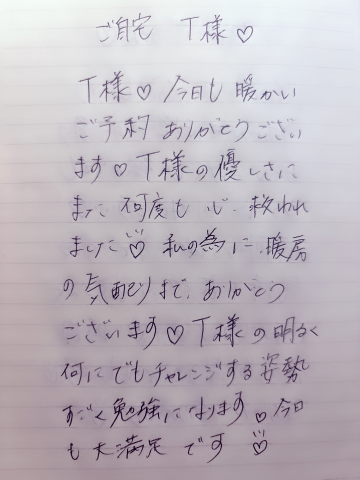 ご自宅 T様♡
T様♡今日も暖かい
ご予約ありがとうござい
ます♡T様の優しさに
また何度も心救われ
ました♡私の為に、暖房
の気配りまで、ありがとう
ございます♡T様の明るく
何にでもチャレンジする姿勢
すごく勉強になります♡今日
も大満足です♡